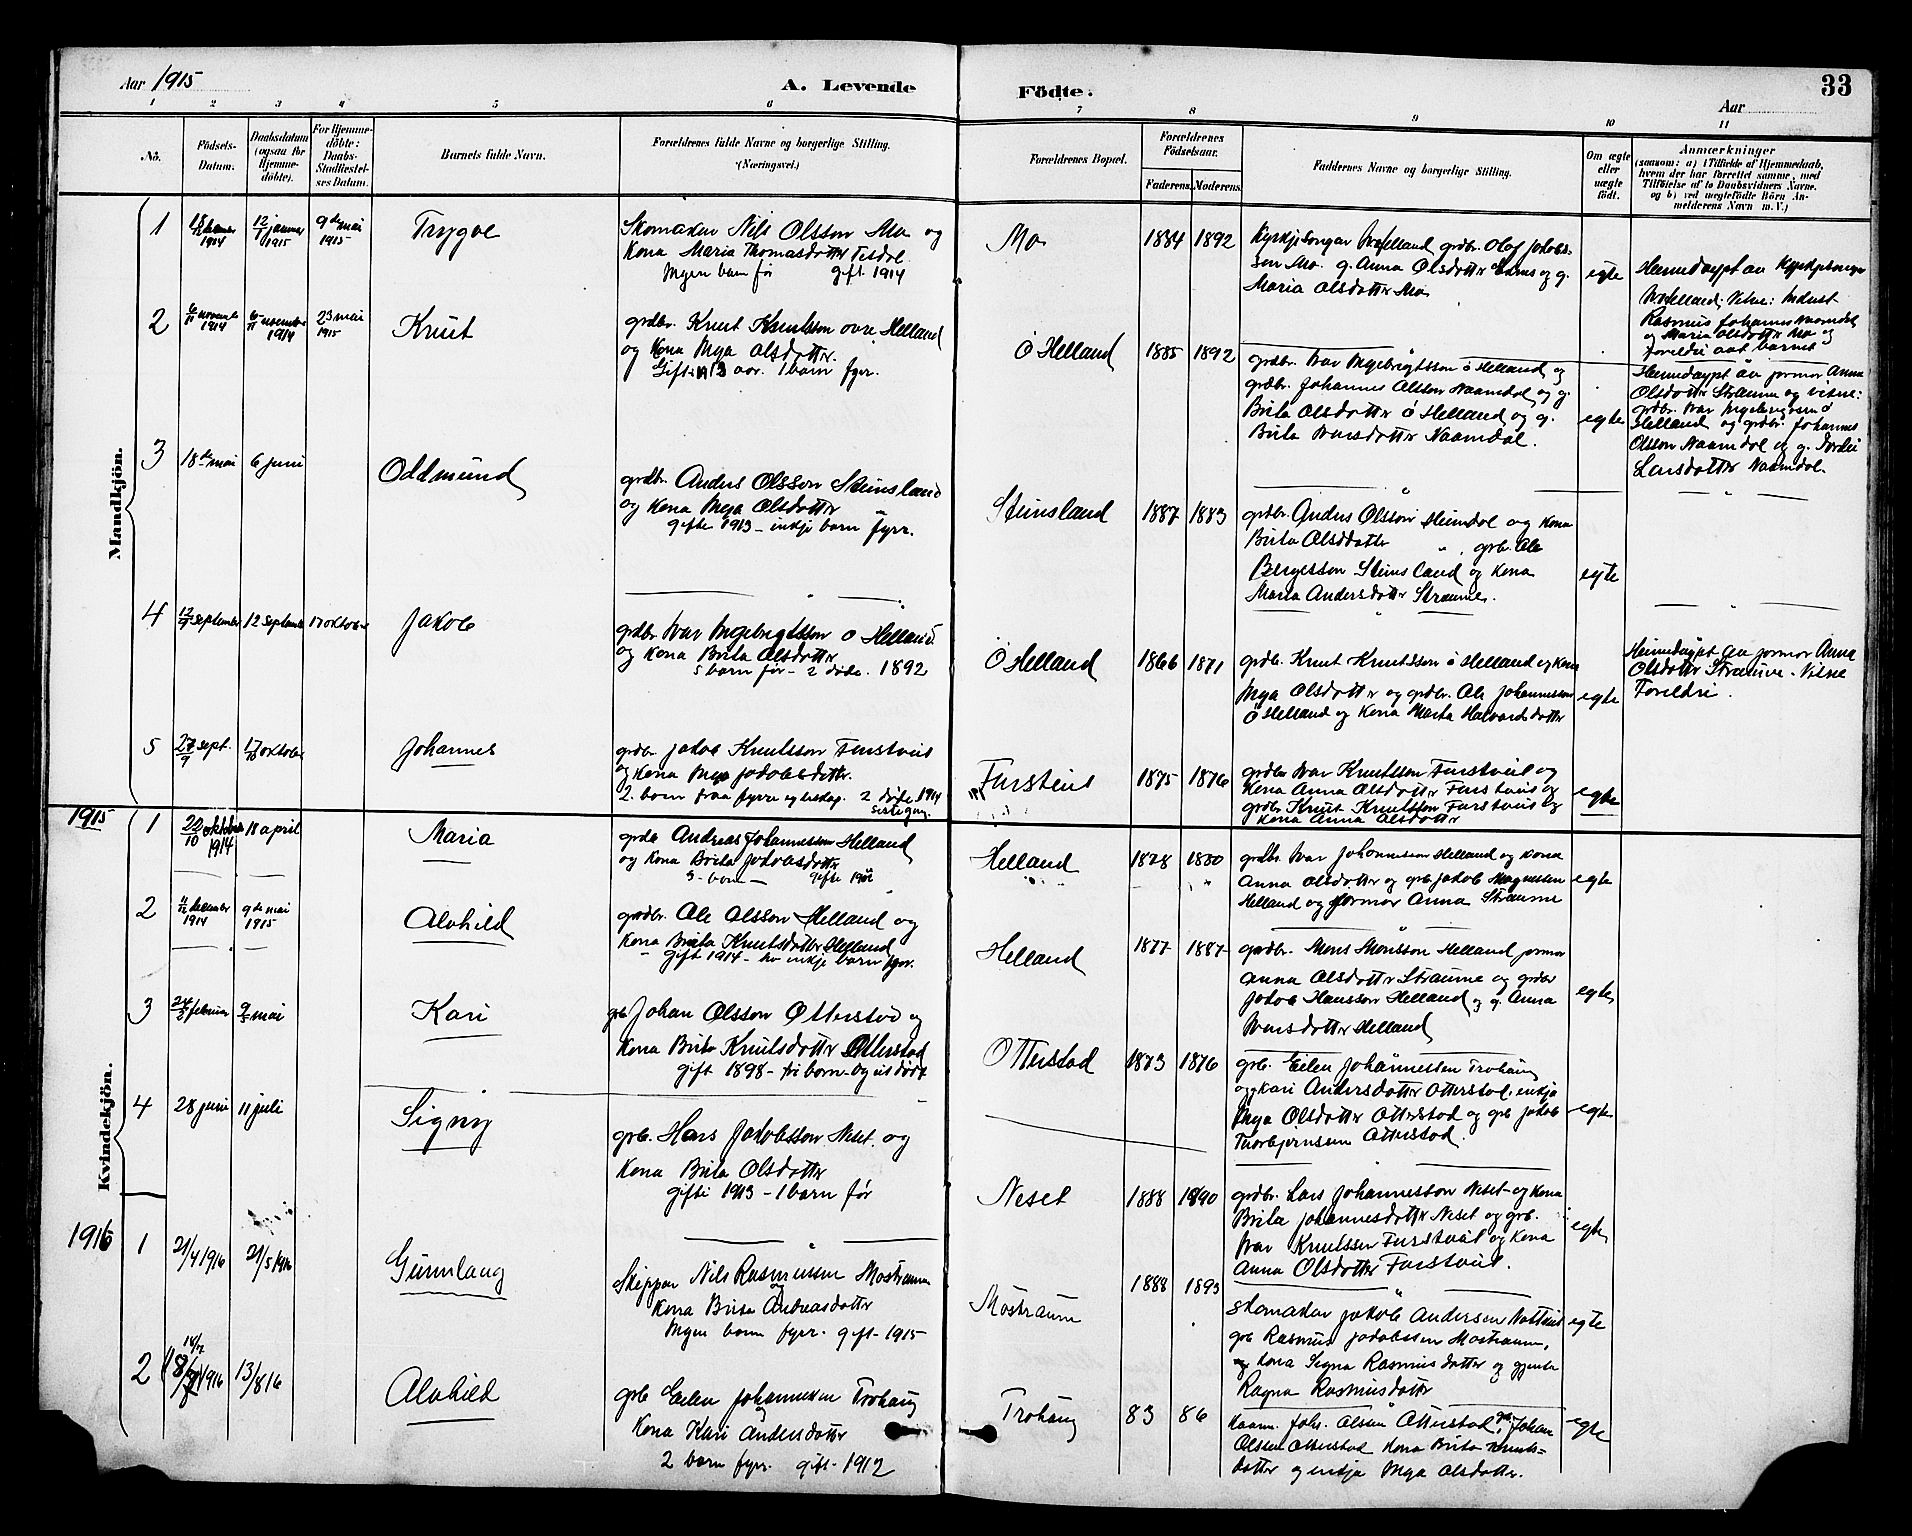 Aar 1915
A. Levende
Födte.
Aar
33
1 2 3 4 5 6 7 8 9 10 11
No.
Födsels-
Datum.
Daabsdatum
(ogsaa for
Hjemme-
döbte).
For Hjemme-
döbte:
Daabs-
Stadfæstel-
ses Datum.
Barnets fulde Navn.
Forældrenes fulde Navne og borgerlige Stilling.
(Næringsvei.)
Forældrenes Bopæl.
Forældrenes
Födselsaar.
Faderens. Moderens.
Faddernes Navne og borgerlige Stilling.
Om ægte
eller
uægte
født.
Anmærkninger
(saasom: a) i Tilfælde af Hjemmedaab,
hvem der har forrettet samme, med
Tilföielse af to Daabsvidners Navne,
og b) ved uægtefödte Börn An-
melderens Navn m. V.)
Mandkjön.
1
1914
12/1 januar
1915
9de mai
1915
Trygve
Skomaker Nils Olsson Mo og
Kona Maria Thomasdotter Tesdal
Ingen barn før gift 1914
Mo
1884 1892
Kyrkjesongar Helland grdbr. Olaf Jakobs-
son Mo. g. Anna Olsdotter og g.
Maria Olsdotter Mo
egte
Heimedøypt av Kyrkjesongar
Helland; Vitne: Indust
Rasmus Johannes Naamdal
og Maria Olsdotter Mo og
foreldri aat barnet
2
6/11 novembr
1914
6/11 novembr
1914
23 mai
1915
Knut
grdbr. Knut Knutsson øvre Helland
og Kona Inga Olsdotter.
Gifte 1913 1 barn fyrr.
ö Helland
1885 1892
grdbr. Ivar Ingebrigtsson ö Helland og
grdbr. Johannes Olsson Naamdal og g.
Brita Olsdotter ö Helland og g.
Brita Iversdotter Naamdal.
egte
Heimedøypt av jormor Anna
Olsdotter Straume og vitne:
grdbr. Ivar Ingebrigtsson ö
Helland og grdbr. Johannes
Olsson Naamdal og g.
Larsdotter Naamdal.
3
18de mai
6 juni
Oddmund
grdbr. Anders Olsson Steinsland
og Kona Inga Olsdotter
gifte 1913 - inkje barn fyrr.
Steinsland
1887 1883
grdbr. Anders Olsson Steindal og Kona
Brita Olsdotter " grb. Ole
Bergesson Steinsland og Kona
Maria Andersdotter Straume.
egte
4
12/9 september
12 September
17 oktober
Jakob
grdbr Ivar Ingebrigtsson ö Helland
og Kona Brita Olsdotter
5 barn før - 2 døde. 1892
Ö Helland
1866 1871
grdb. Knut Knutsson ö Helland og Kona
Inga Olsdotter og grdbr. Ole Johannesson
ö Helland og Kona Marta Halvardsdotter
egte
Heimedøypt av jormor Anna
Olsdotter Straume. Vitne
Foreldri.
5
27/9 sept.
17/10 oktober
Johannes
grdbr. Jakob Knutsson Furstveit
og Kona Inga Jakobsdotter.
2. barn fraa fyrre egteskap. 2 døde. 1914
sistegong.
Furstveit
1875 1876
grdbr Ivar Knutsson Furstveit og
Kona Anna Olsdotter Furstveit og
grdbr Knut Knutsson Furstveit og
Kona Anna Olsdotter
egte
1915
Kvindekjön.
1
22/10 oktober
1914
18 april
Maria
grdbr Andreas Johannessen Helland
og Kona Brita Jakobsdotter
3 - barn - gifte
Helland
1878 1880
grdbr. Ivar Johannessen Helland og Kona
Anna Olsdotter og grb. Jakob Magnussen
Helland og jormor Anna Straume
egte
2
11/12 desember
1914
9de mai
1915
Alvhild
grdbr. Ole Olsson Helland og
Kona Brita Knutsdotter Helland
gift 1914 - inkje barn fyrr.
Helland
1877 1887
grdbr. Mons Monsson Helland jormor
Anna Olsdotter Straume og grdbr
Jakob Hansson Helland og g. Anna
Iversdotter Helland
egte
3
24/2 februar
9/5 mai
Kari
grb Johan Olsson Otterstad og
Kona Brita Knutsdotter Otterstad
gift 1898 - tri barn - og eit dødt
Otterstad
1873 1876
grb. Eilen Johannessen Trohaug
og Kari Andersdotter Otterstad, enkja
Inga Olsdotter Otterstad og grb Jakob
Thorbjørnsen Otterstad.
egte
4
28 juni
11 juli
Signy
grb. Hans Jakobsson Neset, og
Kona Brita Olsdotter
gifte 1913 - 1 barn før
Neset
1888 1890
grdbr. Lars Johannesson Neset og Kona
Brita Johannesdotter Neset og grb.
Ivar Knutsson Furstveit og Kona
Anna Olsdotter Furstveit.
egte
1916
1
21/4 1916
21/5 1916
Gunnlaug
Skippar Nils Rasmussen Mostraum
og
Kona Brita Andreasdotter
Ingen barn fyrr. gift - 1915
Mostraum
1888 1893
Skomaker Jakob Andersen
grb Rasmus Jakobssen Mostraum,
og kona Signa Rasmusdotter og gjenta
Ragna Rasmusdotter
egte
2
18/7
1916
13/8 16
Alvhild
grb Eilen Johannesen Trohaug
og
Kona Kari Andersdotter
2 barn fyrr. gift - 1912
Trohaug
83 86
Kaarm. Johs. Olsen Otterstad, grb. Johan
Olsson Otterstad Kona Brita Knuts-
dotter og enkja Inga Olsdotter.
egte